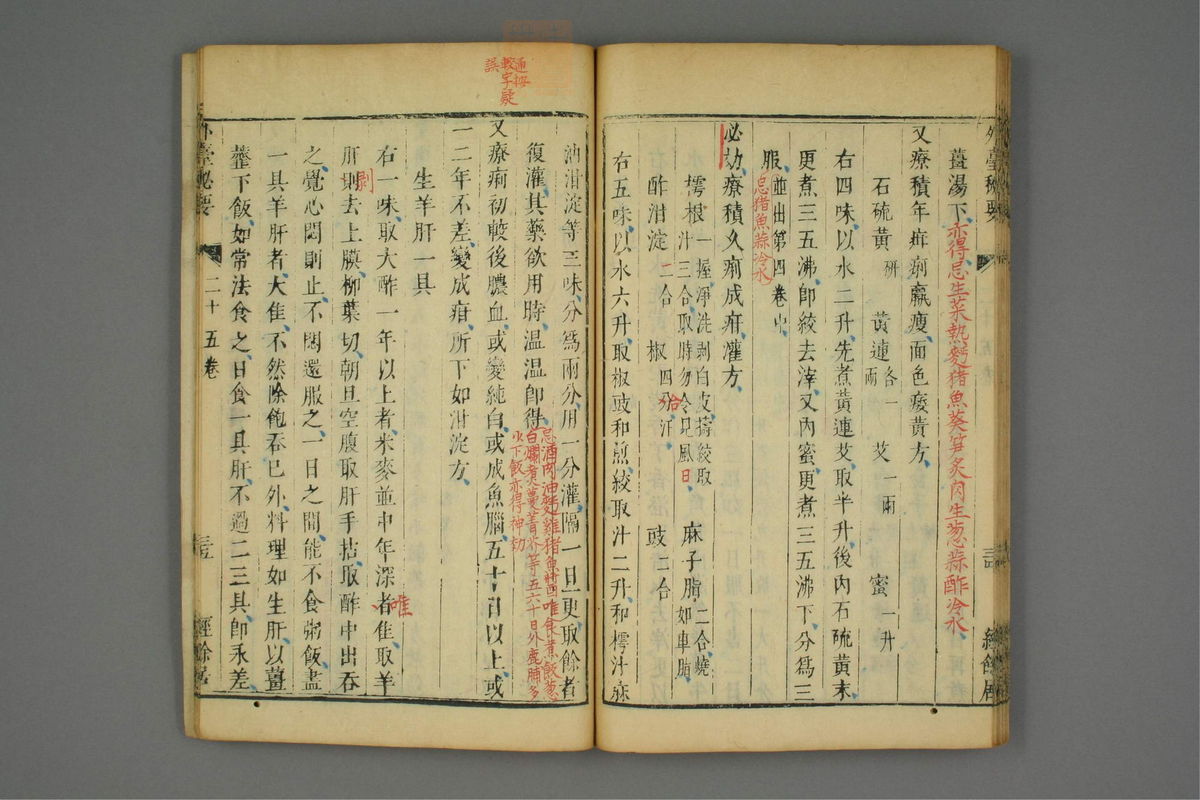 外臺秘要
三五
經餘居
薑湯下亦得忌生菜熱麵猪魚葵笋炙肉生葱蒜酢冷水
又療積年疳痢羸瘦面色痿黃方
石硫黃研 黃連各一兩 艾一兩 蜜一升
右四味以水二升先煮黃連艾取半升後內石硫黃末
更煮三五沸即絞去滓又內蜜更煮三五沸下分爲三
服並出第四卷中忌猪魚蒜冷水
必効療積久痢成疳灌方
樗根一握淨洗剥白皮擣絞取汁三合取時勿令見風日 麻子脂二合燒如車脂
酢泔淀二合 椒四合 豉二合
右五味以水六升取椒豉和煎絞取汁二升和樗汁麻
油泔淀等三味分爲兩分用一分灌隔一日更取餘者
復灌其藥欲用時温温即得忌酒肉油麪雞猪魚醬唯食煮飯葱白爛煮蔓菁芥等五六十日外鹿脯多少下飯亦得神効
又療痢初較後膿血或變純白或成魚腦五十日以上或
一二年不差變成疳所下如泔淀方
生羊肝一具
右一味取大酢一年以上者米麥並中年深者唯隹取羊
肝則剥去上膜柳葉切朝旦空腹取肝手拈取酢中出吞
之覺心悶則止不悶還服之一日之間能不食粥飯盡
一具羊肝者大隹不然除飽吞已外料理如生肝以薑
虀下飯如常法食之日食一具肝不過二三具即永差
外臺秘要
二十五卷
三五
經餘居
通按較字疑誤